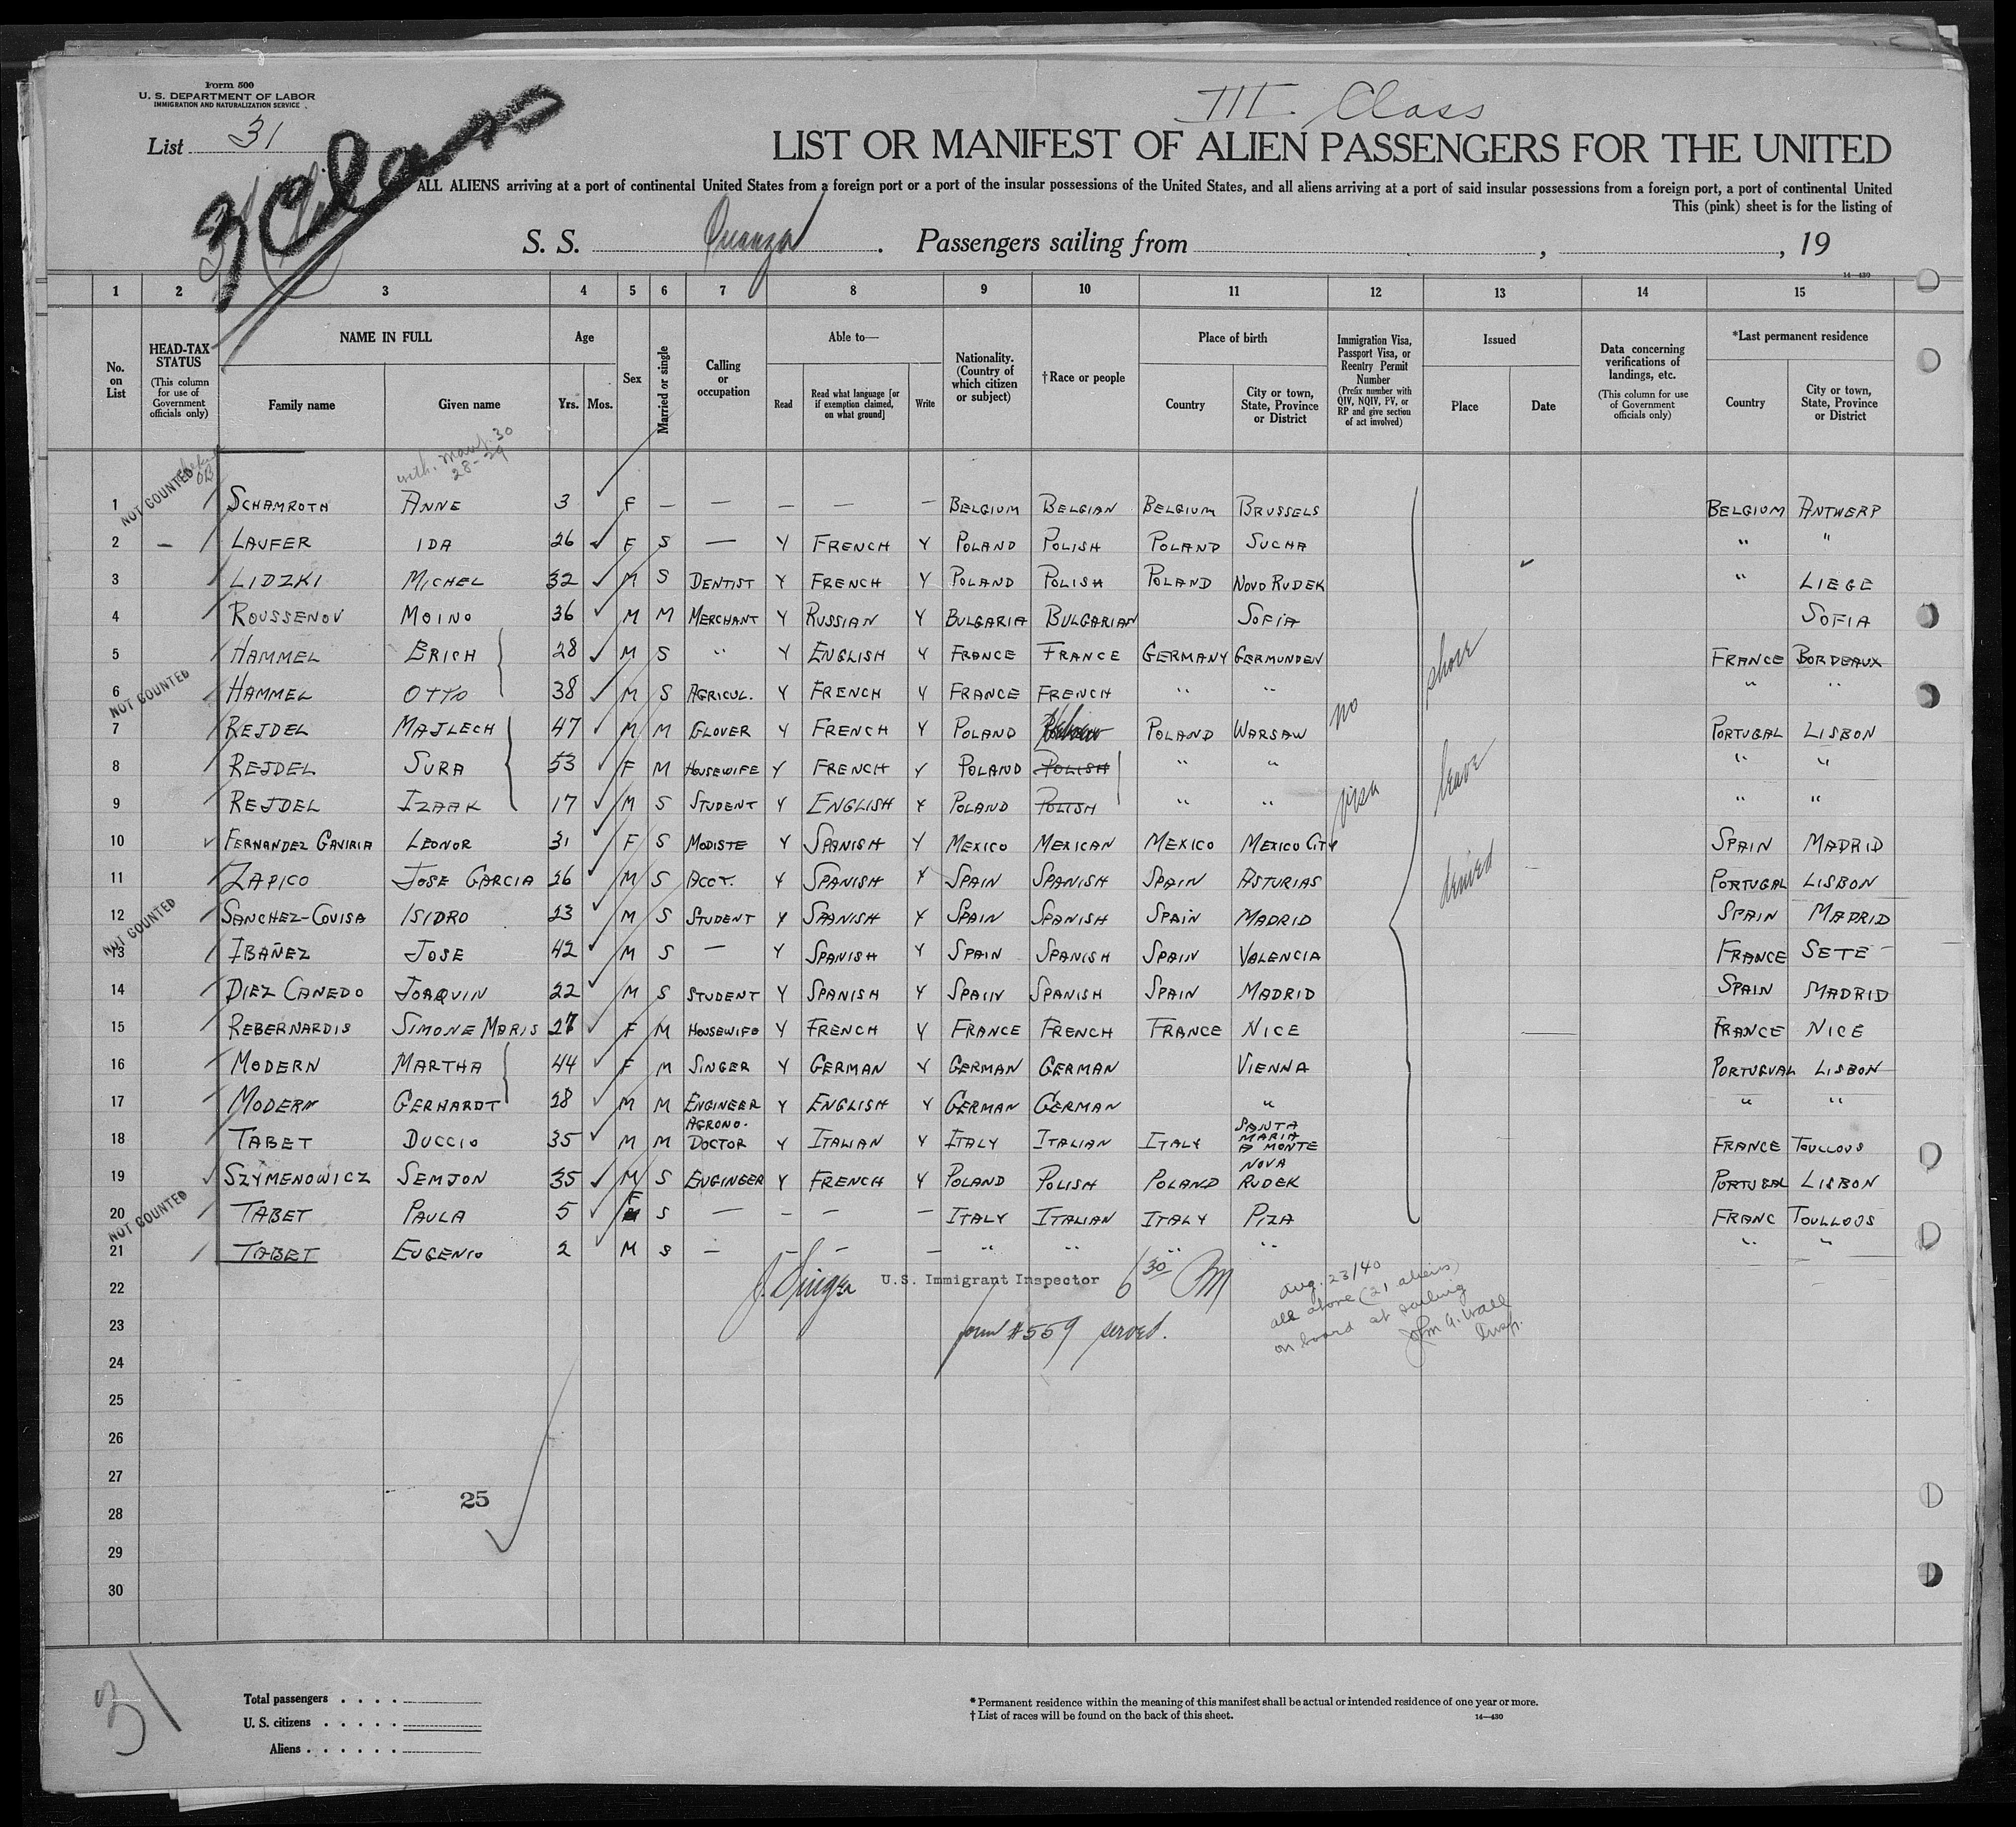 Form 500
U. S. DEPARTMENT OF LABOR
IMMIGRATION AND NATURALIZATION SERVICE
List 31
3 Class
III Class
LIST OR MANIFEST OF ALIEN PASSENGERS FOR THE UNITED
ALL ALIENS arriving at a port of continental United States from a foreign port or a port of the insular possessions of the United States, and all aliens arriving at a port of said insular possessions from a foreign port, a port of continental United
This (pink) sheet is for the listing of
S. S. Quanza . Passengers sailing from , , 19
14—430
1 2 3 4 5 6 7 8 9 10 11 12 13 14 15
No. on List
HEAD-TAX STATUS (This column for use of Government officials only)
NAME IN FULL Family name Given name
Age Yrs. Mos.
Sex
Married or single
Calling or occupation
Able to— Read Read what language [or if exemption claimed, on what ground] Write
Nationality. (Country of which citizen or subject)
†Race or people
Place of birth Country City or town, State, Province or District
Immigration Visa, Passport Visa, or Reentry Permit Number (Prefix number with QIV, NQIV, PV, or RP and give section of act involved)
Issued Place Date
Data concerning verifications of landings, etc. (This column for use of Government officials only)
*Last permanent residence Country City or town, State, Province or District
with. manf. 30
28-29
NOT COUNTED
1 SCHAMROTH ANNE 3 F — — — — — BELGIUM BELGIAN BELGIUM BRUSSELS BELGIUM ANTWERP
2 — LAUFER IDA 26 F S — Y FRENCH Y POLAND POLISH POLAND SUCHA " "
3 LIDZKI MICHEL 32 M S DENTIST Y FRENCH Y POLAND POLISH POLAND NOVO RUDEK " LIEGE
4 ROUSSENOV MOINO 36 M M MERCHANT Y RUSSIAN Y BULGARIA BULGARIAN SOFIA SOFIA
5 HAMMEL ERICH 28 M S " Y ENGLISH Y FRANCE FRANCE GERMANY GERMUNDEN FRANCE BORDEAUX
NOT COUNTED
6 HAMMEL OTTO 38 M S AGRICUL. Y FRENCH Y FRANCE FRENCH " " " "
7 REJDEL MAJLECH 47 M M GLOVER Y FRENCH Y POLAND POLAND WARSAW PORTUGAL LISBON
8 REJDEL SURA 53 F M HOUSEWIFE Y FRENCH Y POLAND POLISH " " " "
9 REJDEL IZAAK 17 M S STUDENT Y ENGLISH Y POLAND POLISH " " " "
10 FERNANDEZ GAVIRIA LEONOR 31 F S MODISTE Y SPANISH Y MEXICO MEXICAN MEXICO MEXICO CITY SPAIN MADRID
11 ZAPICO JOSE GARCIA 26 M S ACCT. Y SPANISH Y SPAIN SPANISH SPAIN ASTURIAS PORTUGAL LISBON
NOT COUNTED
12 SANCHEZ-COVISA ISIDRO 23 M S STUDENT Y SPANISH Y SPAIN SPANISH SPAIN MADRID SPAIN MADRID
13 IBAÑEZ JOSE 42 M S — Y SPANISH Y SPAIN SPANISH SPAIN VALENCIA FRANCE SETE
14 DIEZ CANEDO JOAQUIN 22 M S STUDENT Y SPANISH Y SPAIN SPANISH SPAIN MADRID SPAIN MADRID
15 REBERNARDIS SIMONE MARIS 27 F M HOUSEWIFE Y FRENCH Y FRANCE FRENCH FRANCE NICE FRANCE NICE
16 MODERN MARTHA 44 F M SINGER Y GERMAN Y GERMAN GERMAN VIENNA PORTUGUAL LISBON
17 MODERN GERHARDT 28 M M ENGINEER Y ENGLISH Y GERMAN GERMAN " " "
18 TABET DUCCIO 35 M M AGRONO. DOCTOR Y ITALIAN Y ITALY ITALIAN ITALY SANTA MARIA A MONTE FRANCE TOULLOUS
19 SZYMENOWICZ SEMJON 35 M S ENGINEER Y FRENCH Y POLAND POLISH POLAND NOVA RUDEK PORTUGAL LISBON
NOT COUNTED
20 TABET PAULA 5 F S — — — — ITALY ITALIAN ITALY PIZA FRANC TOULLOUS
21 TABET EUGENIO 2 M S — — — — " " " " " "
no visa
shore leave denied
22
23
24
25
26
27
28
29
30
U.S. Immigrant Inspector 6 30 PM
form #559 served.
Aug. 23/40
all above (21 aliens)
on board at sailing
John A. Wall
Insp.
25
31
Total passengers . . . .
U. S. citizens . . . . .
Aliens . . . . . .
* Permanent residence within the meaning of this manifest shall be actual or intended residence of one year or more.
† List of races will be found on the back of this sheet.
14—430